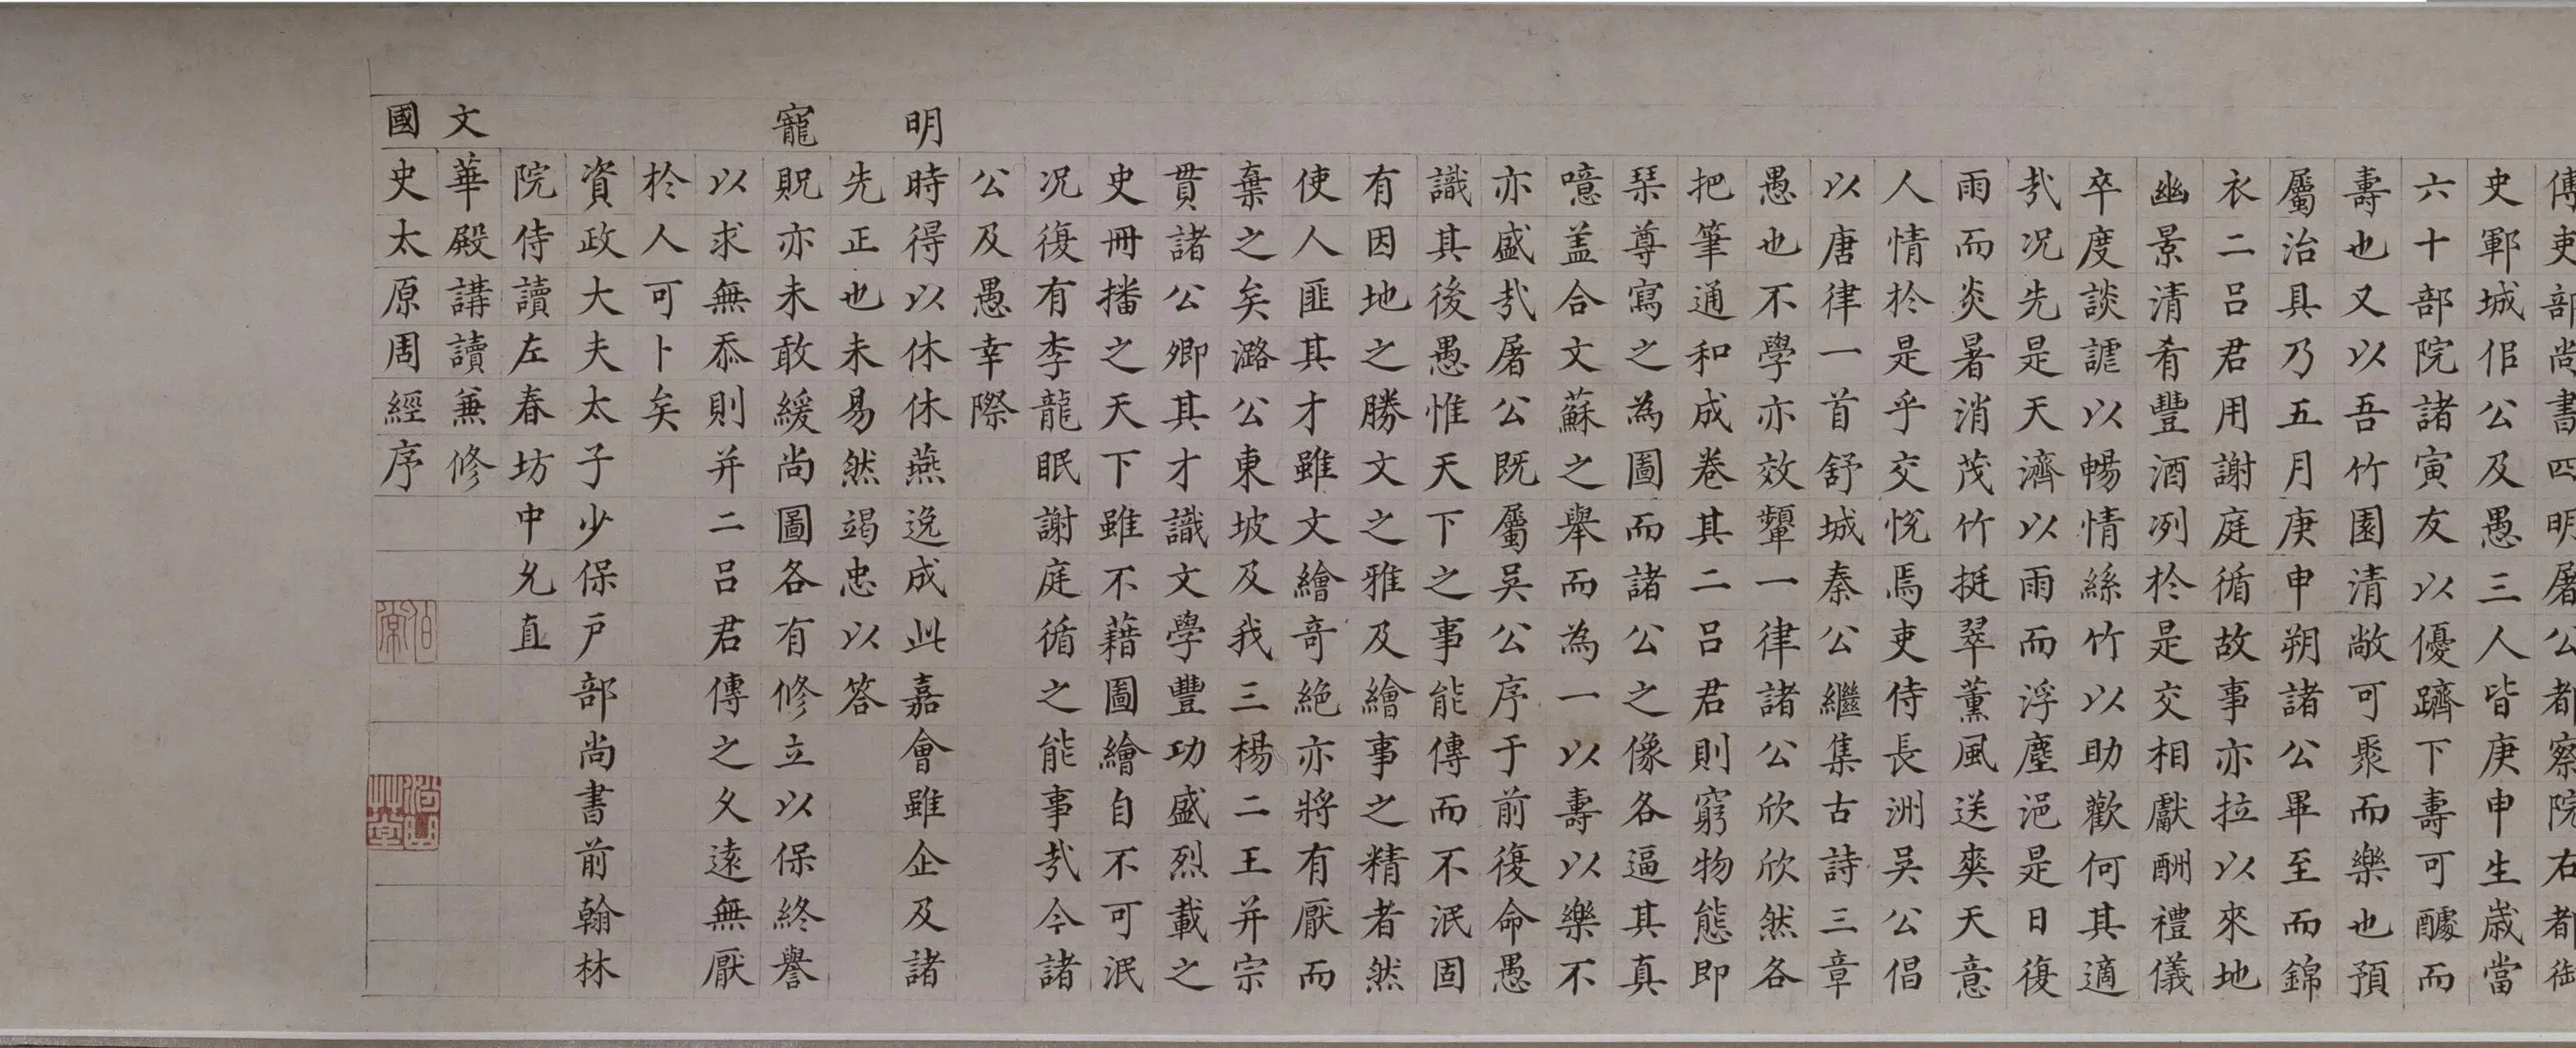 傅吏部尚書四明屠公者察院右者御
史鄆城佀公及愚三人皆庚申生歲當
六十部院諸寅友以優躋下壽可醵而
壽也又以吾竹園清敞可聚而樂也預
屬治具乃五月庚申朔諸公畢至而錦
衣二呂君用謝庭循故事亦拉以來地
幽景清肴豐酒冽於是交相獻酬禮儀
卒度談謔以暢情絲竹以助歡何其適
㢤况先是天濟以雨而浮塵浥是日復
雨而炎暑消茂竹挺翠薫風送爽天意
人情於是乎交悅焉吏侍長洲吳公倡
以唐律一首舒城秦公繼集古詩三章
愚也不學亦效顰一律諸公欣欣然各
把筆通和成卷其二呂君則窮物態即
琹尊寫之為圖而諸公之像各逼其真
噫盖合文蘇之舉而為一以壽以樂不
亦盛㢤屠公既屬吳公序于前復命愚
識其後愚惟天下之事能傳而不泯固
有因地之勝文之雅及繪事之精者然
使人匪其才雖文繪奇絕亦將有厭而
棄之矣潞公東坡及我三楊二王并宗
貫諸公卿其才識文學豐功盛烈載之
史冊播之天下雖不藉圖繪自不可泯
况復有李龍眠謝庭循之能事㢤今諸
公及愚幸際
明時得以休休燕逸成此嘉會雖企及諸
先正也未易然竭忠以答
寵貺亦未敢緩尚圖各有修立以保終譽
以求無忝則并二呂君傳之久遠無厭
於人可卜矣
資政大夫太子少保戶部尚書前翰林
院侍讀左春坊中允直
文華殿講讀兼修
國史太原周經序
伯常